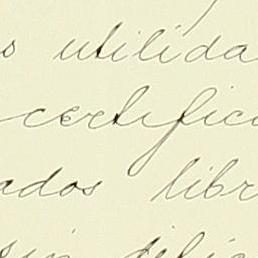 s utilida
certific
ados libr
sin